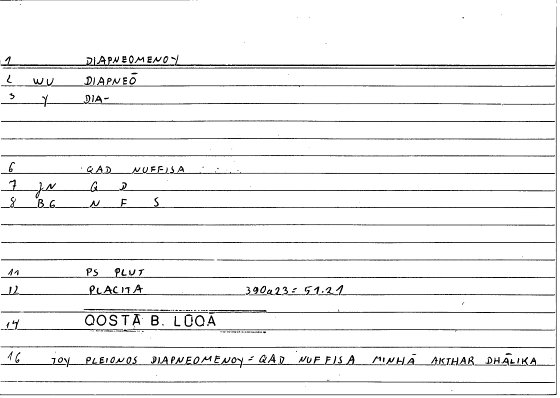 1 DIAPNEOMENOY
2 WU DIAPNEŌ
3 Y DIA-
6 QAD NUFFISA
7 JN Q D
8 BG N F S
11 PS PLUT
12 PLACITA 390a23=51.21
14 QOSTĀ B. LŪQĀ
16 TOY PLEIONOS DIAPNEOMENOY=QAD NUFFISA MINHĀ AKTHAR DHĀLIKA